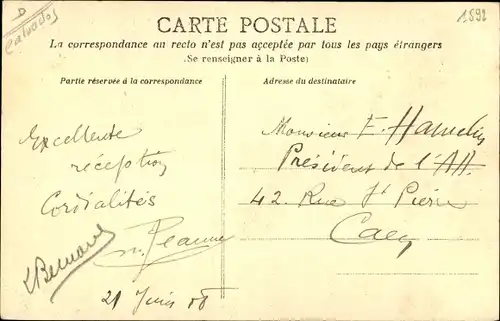 D
Calvados
1892
CARTE POSTALE
La correspondance au recto n'est pas acceptée par tous les pays étrangers
(Se renseigner à la Poste)
Partie réservée à la correspondance
Adresse du destinataire
Excellente
réception
Cordialités
L Bernard
21 Juin 08
Monsieur F. Hamelin
Président de l'
42. Rue St Pierre
Caen